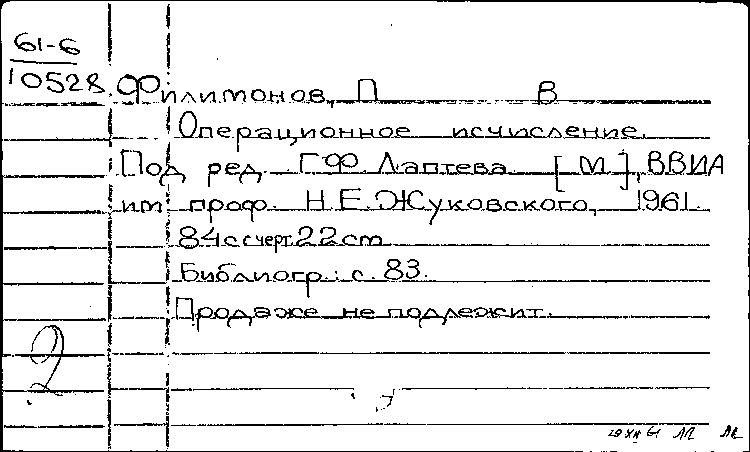 61-6
10528
Филимонов, П В
Операционное исчисление.
Под ред. Г.Ф. Лаптева. [М], ВВИА
им проф. Н.Е. Жуковского, 1961.
84с с черт. 22 cm
Библиогр.: с. 83.
Продаже не подлежит.
2